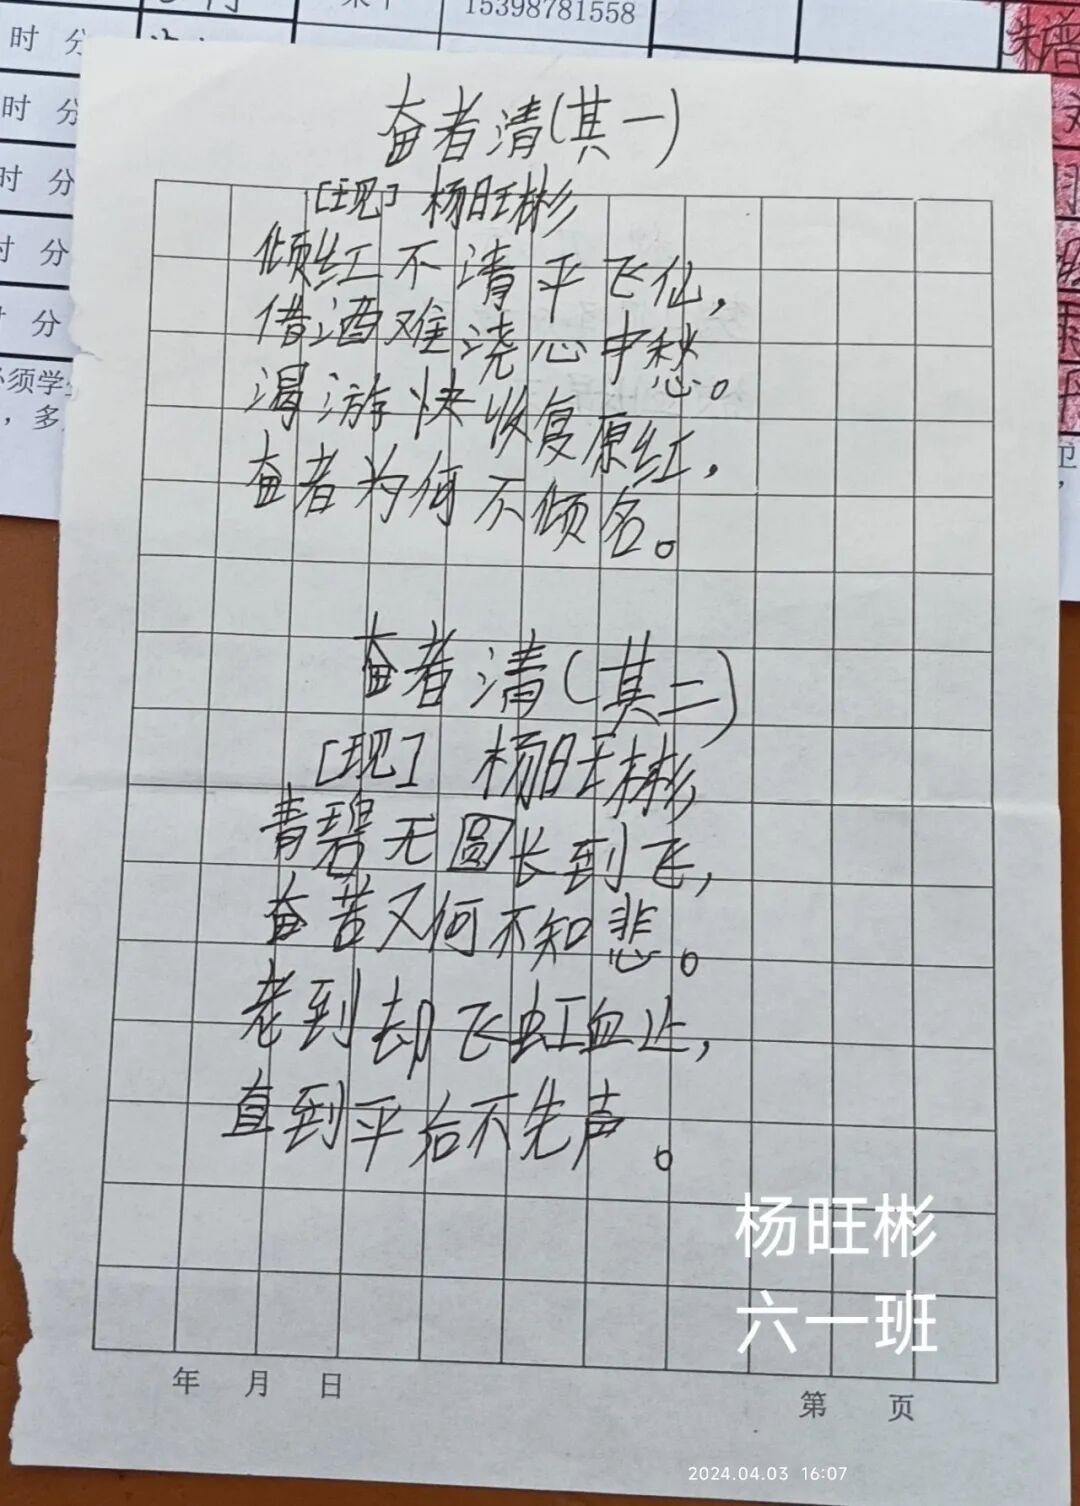 15398781558
时 分
时 分
时 分
时 分
时 分
必须学
，多
奋者清(其一)
[现] 杨旺彬
倾红不清平飞仙，
借酒难浇心中愁。
渴游快收复原红，
奋者为何不倾名。
奋者清(其二)
[现] 杨旺彬
青碧无圆长到飞，
奋苦又何不知悲。
老到却飞虹血止，
直到平治不先声。
杨旺彬
六一班
年 月 日
第 页
2024.04.03 16:07